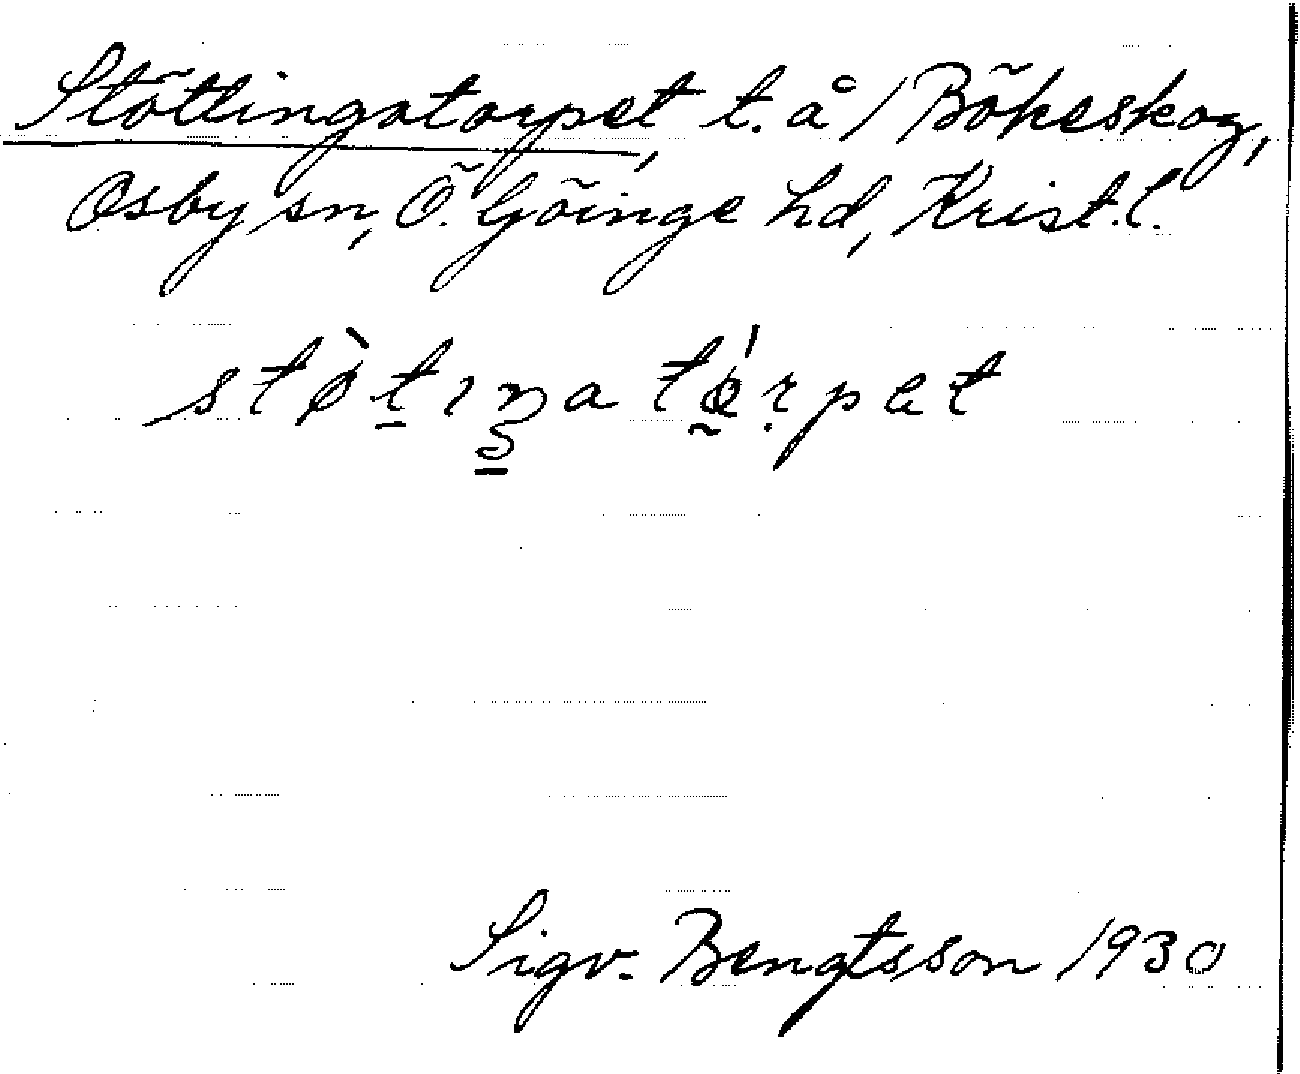 Stöttingatorpet t. å 1 Bökeskog,
Osby sn, Ö. Göinge hd, Krist. l.
støtıŋa tørpet
Sigv. Bengtsson 1930